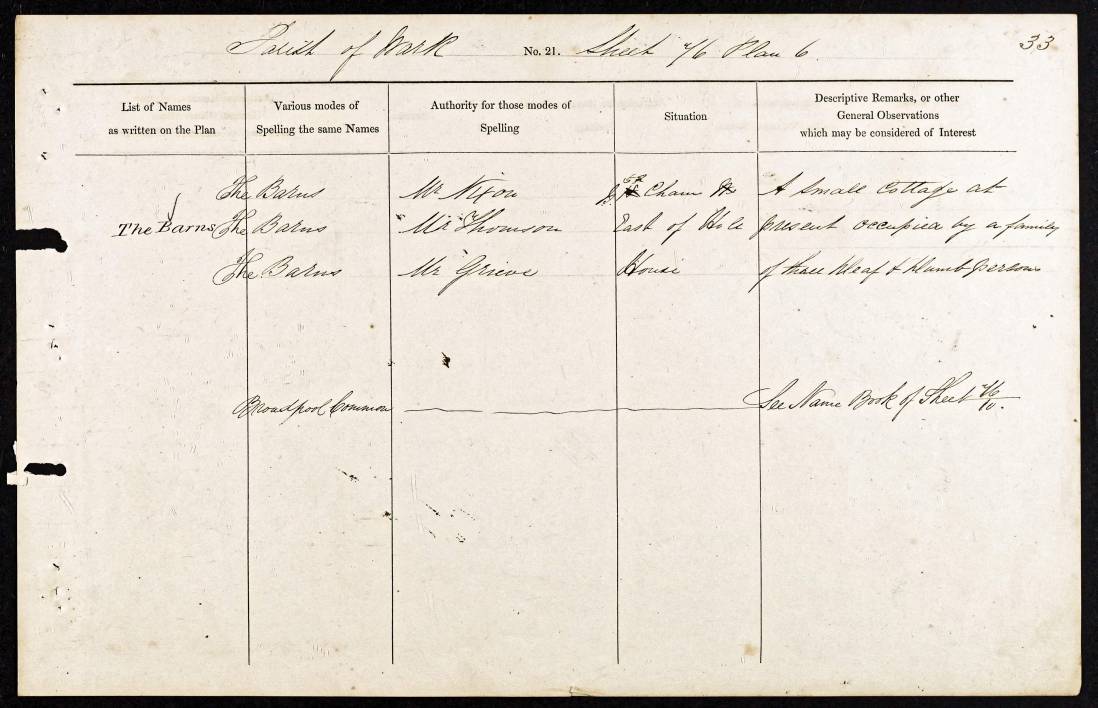 Parish of Wark No. 21. Sheet Plan 6. 33
List of Names
as written on the Plan
Various modes of
Spelling the same Names
Authority for those modes of
Spelling
Situation
Descriptive Remarks, or other
General Observations
which may be considered of Interest
The Barns Mr Nixon Chain A Small Cottage at
The Barns The Barns Mr Thomson East of Hole present occupied by a family
The Barns Mr Grieve House of three deaf & dumb persons
Broadpool Common See Name Book of Sheet